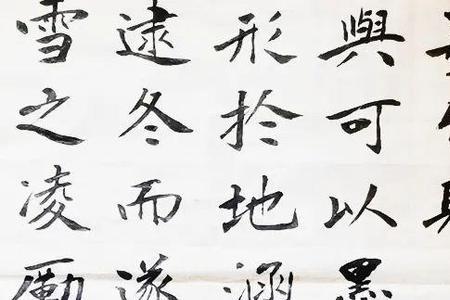 與可以墨
形於地涵
逮冬而遂
雪之凌勵